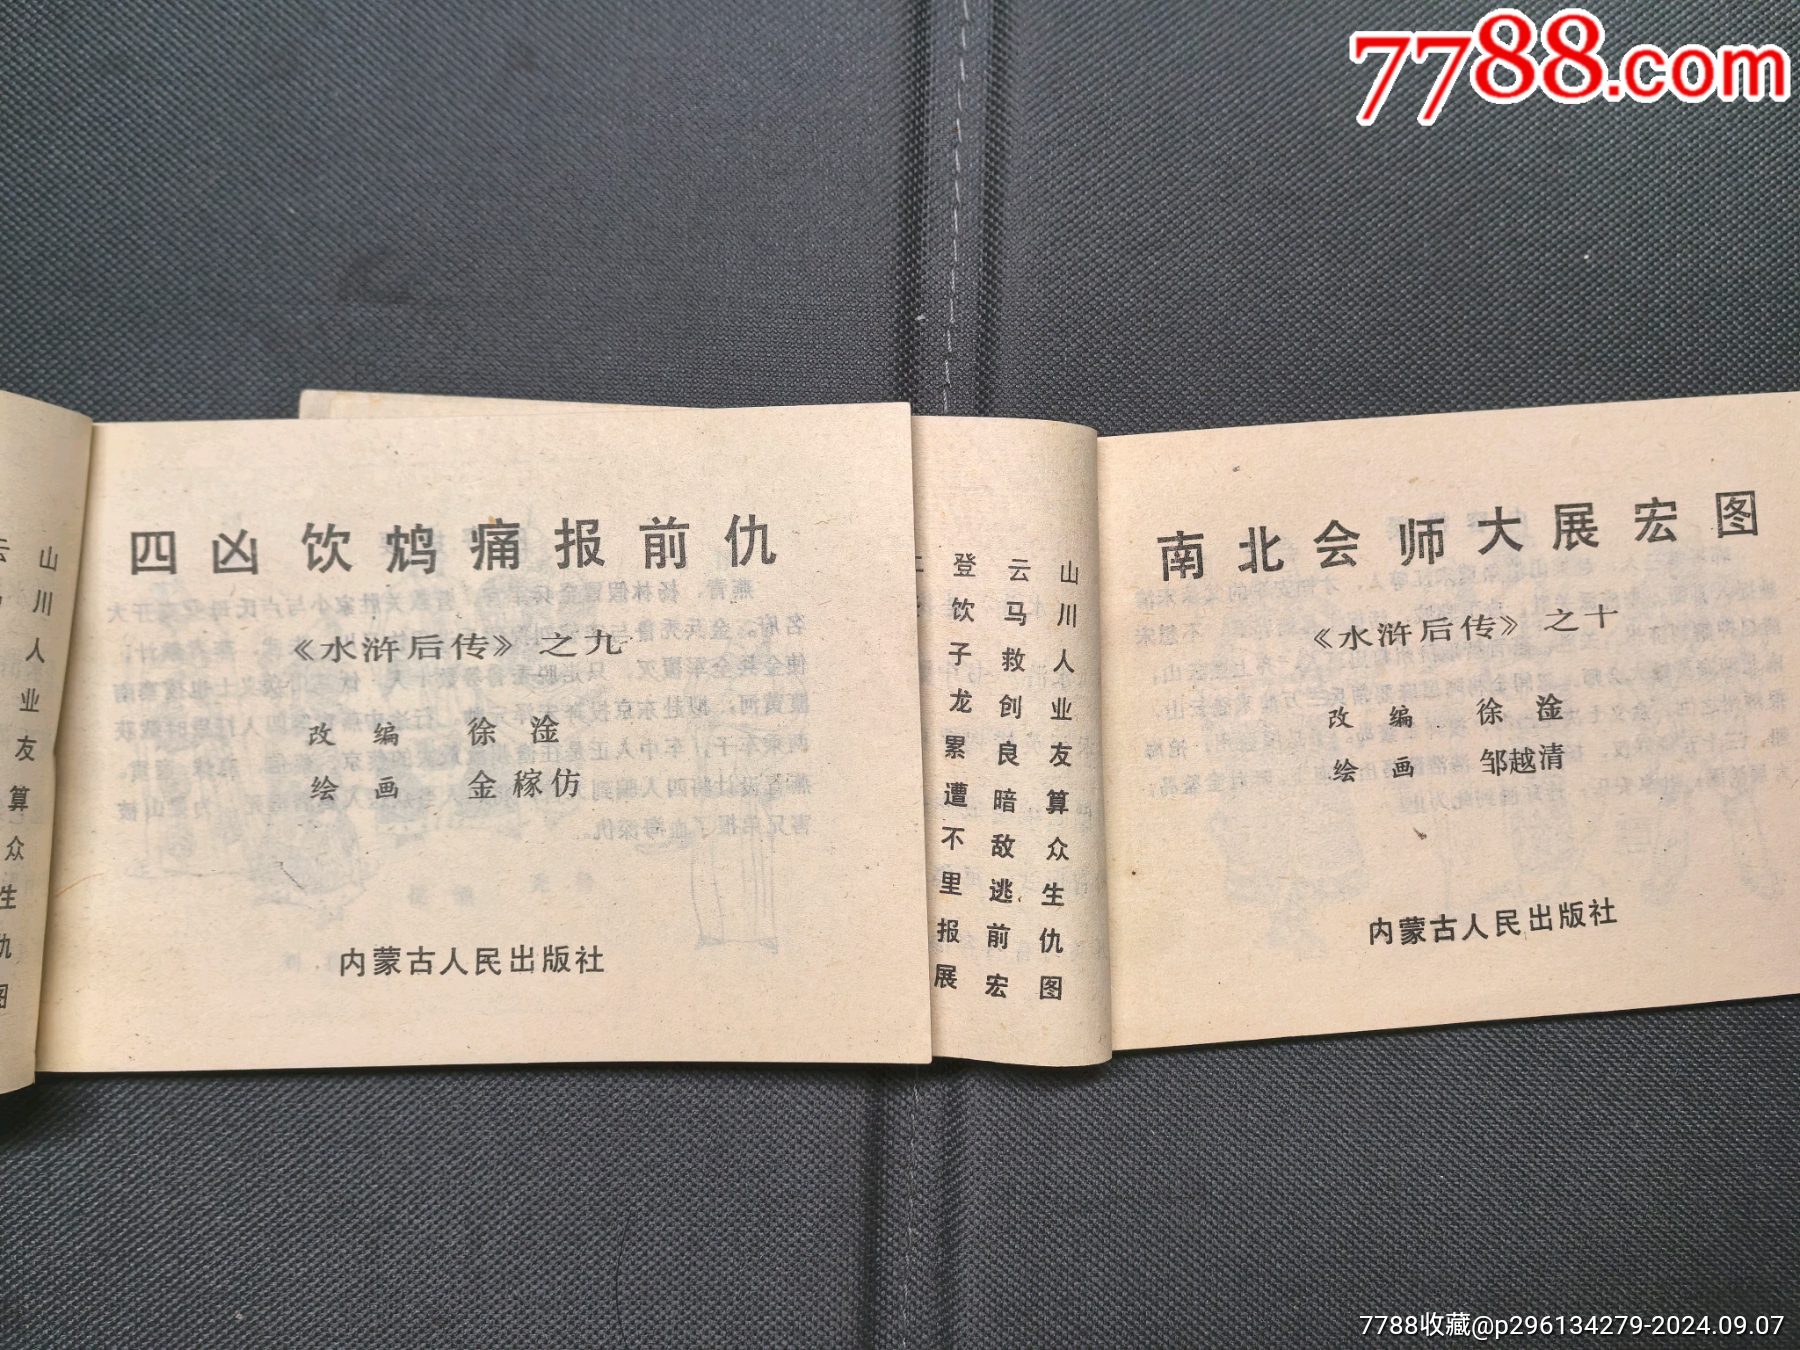 7788.com
四凶饮鸩痛报前仇
《水浒后传》之九
改编 徐淦
绘画 金稼仿
内蒙古人民出版社
登云山
饮马川
子救人
龙创业
累良友
遭暗算
不敌众
里逃生
报前仇
展宏图
南北会师大展宏图
《水浒后传》之十
改编 徐淦
绘画 邹越清
内蒙古人民出版社
山川人业友算众生仇图
7788收藏@p296134279-2024.09.07